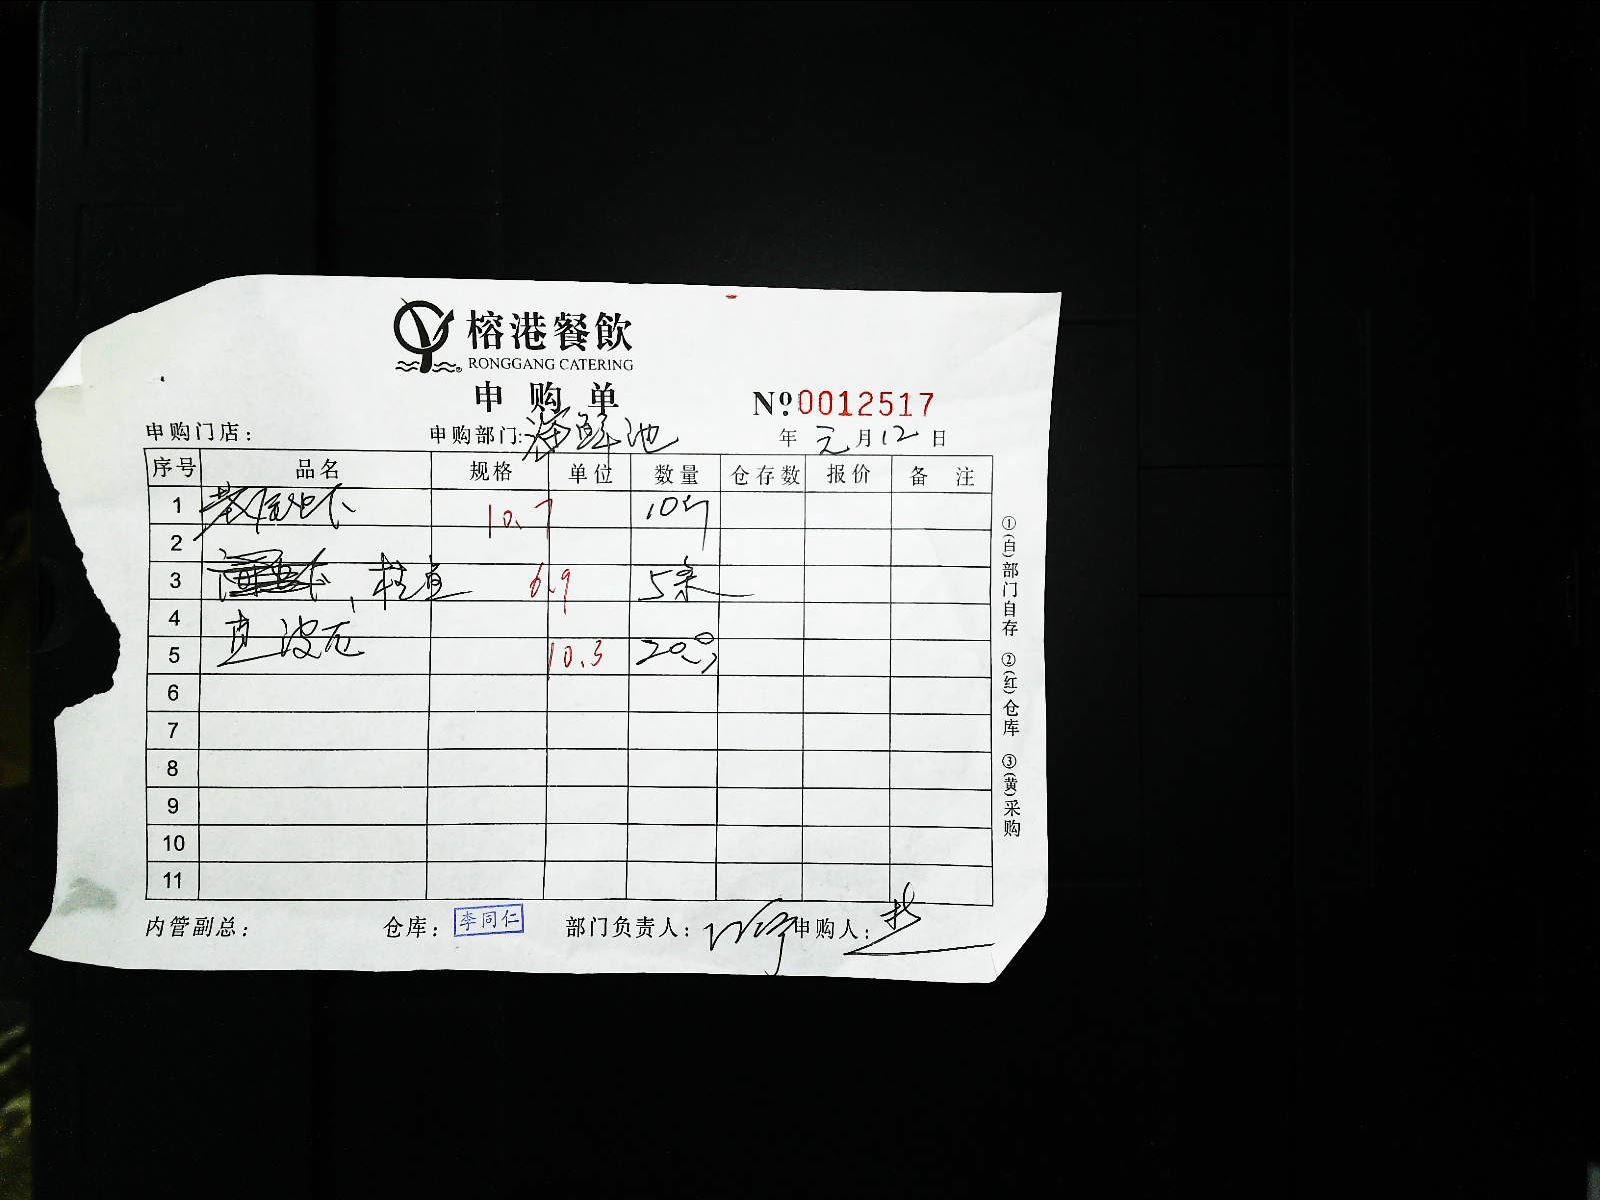 榕港餐飲
RONGGANG CATERING
申购单
Nº 0012517
申购门店： 申购部门：海鲜池 年 元 月 12 日
序号 品名 规格 单位 数量 仓存数 报价 备注
1 10.7 10斤
2
3 桂鱼 6.9 5条
4
5 10.3
6
7
8
9
10
11
内管副总： 仓库：李同仁 部门负责人： 申购人：
①(白)部门自存 ②(红)仓库 ③(黄)采购